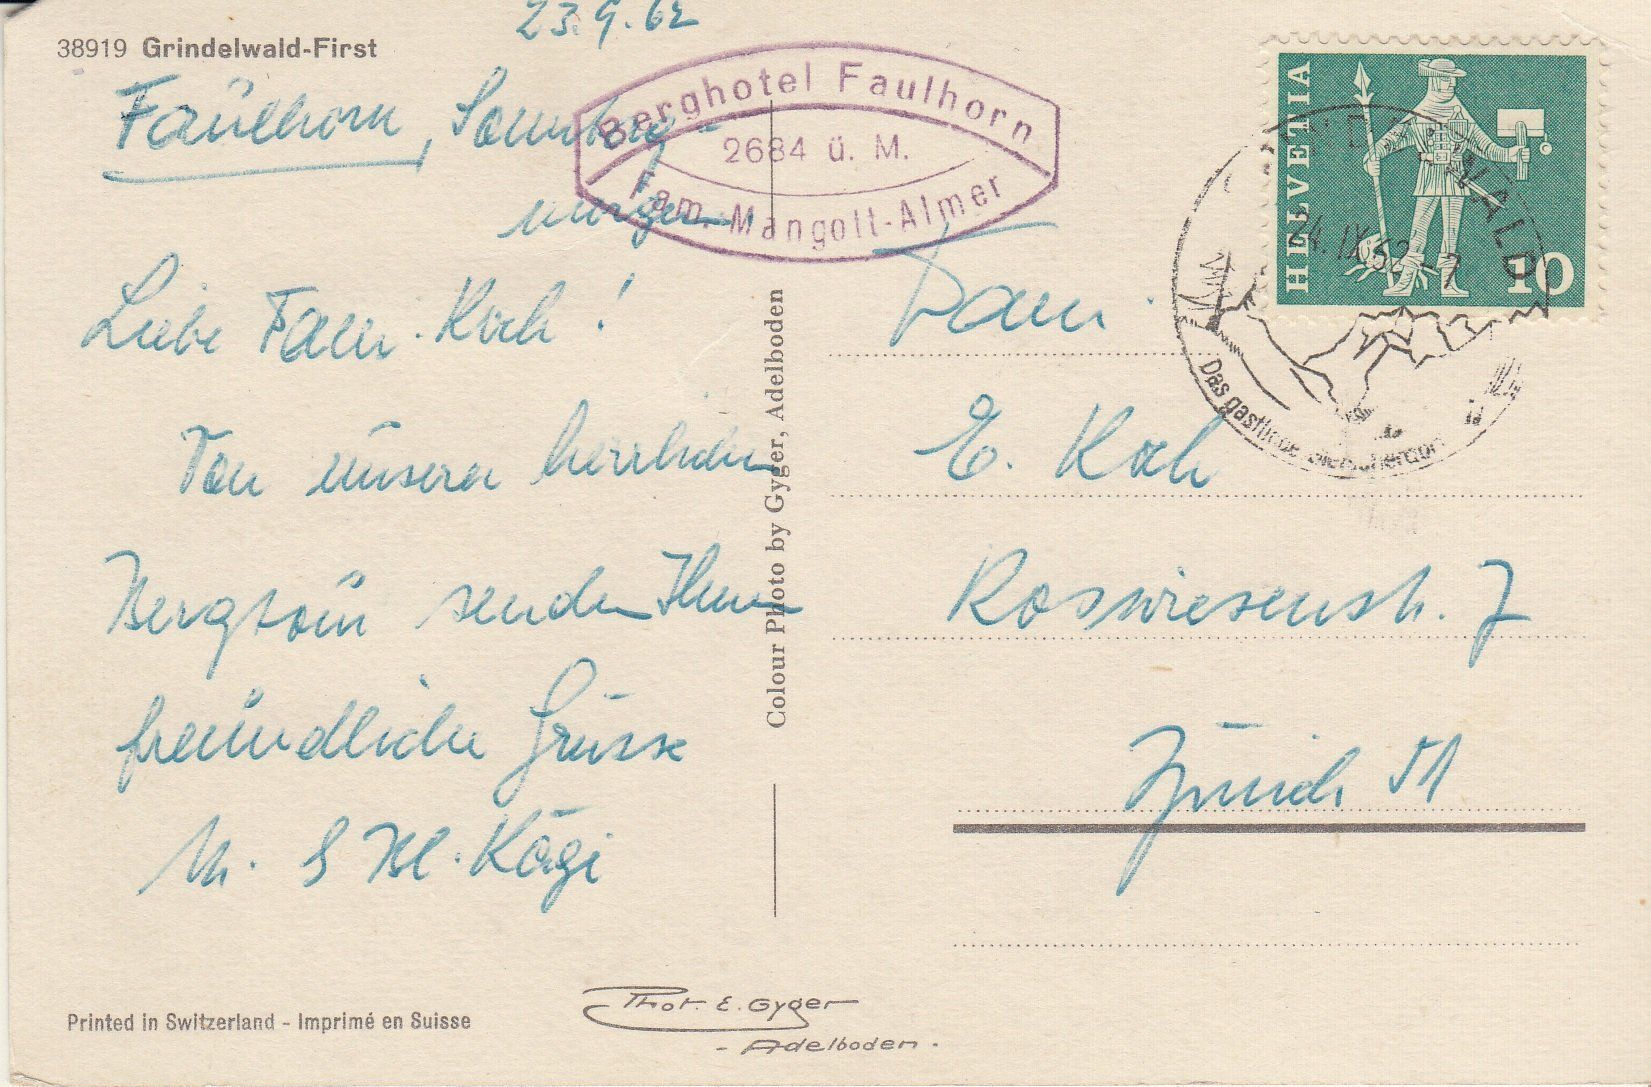 23.9.62
38919 Grindelwald-First
Faulhorn, Sonntag-
morgen
Berghotel Faulhorn
2684 ü. M.
Fam. Mangott-Almer
HELVETIA
10
GRINDELWALD
24.IX.62-7
Das gastliche Gletscherdorf
Liebe Frau Koch!
Von unserer herrlichen
Bergtour senden Ihnen
freundliche Grüsse
Kägi
Colour Photo by Gyger, Adelboden
Frau
E. Koch
Rosswiesenstr. 7
Zürich 51
Printed in Switzerland - Imprimé en Suisse
Phot. E. Gyger
- Adelboden -